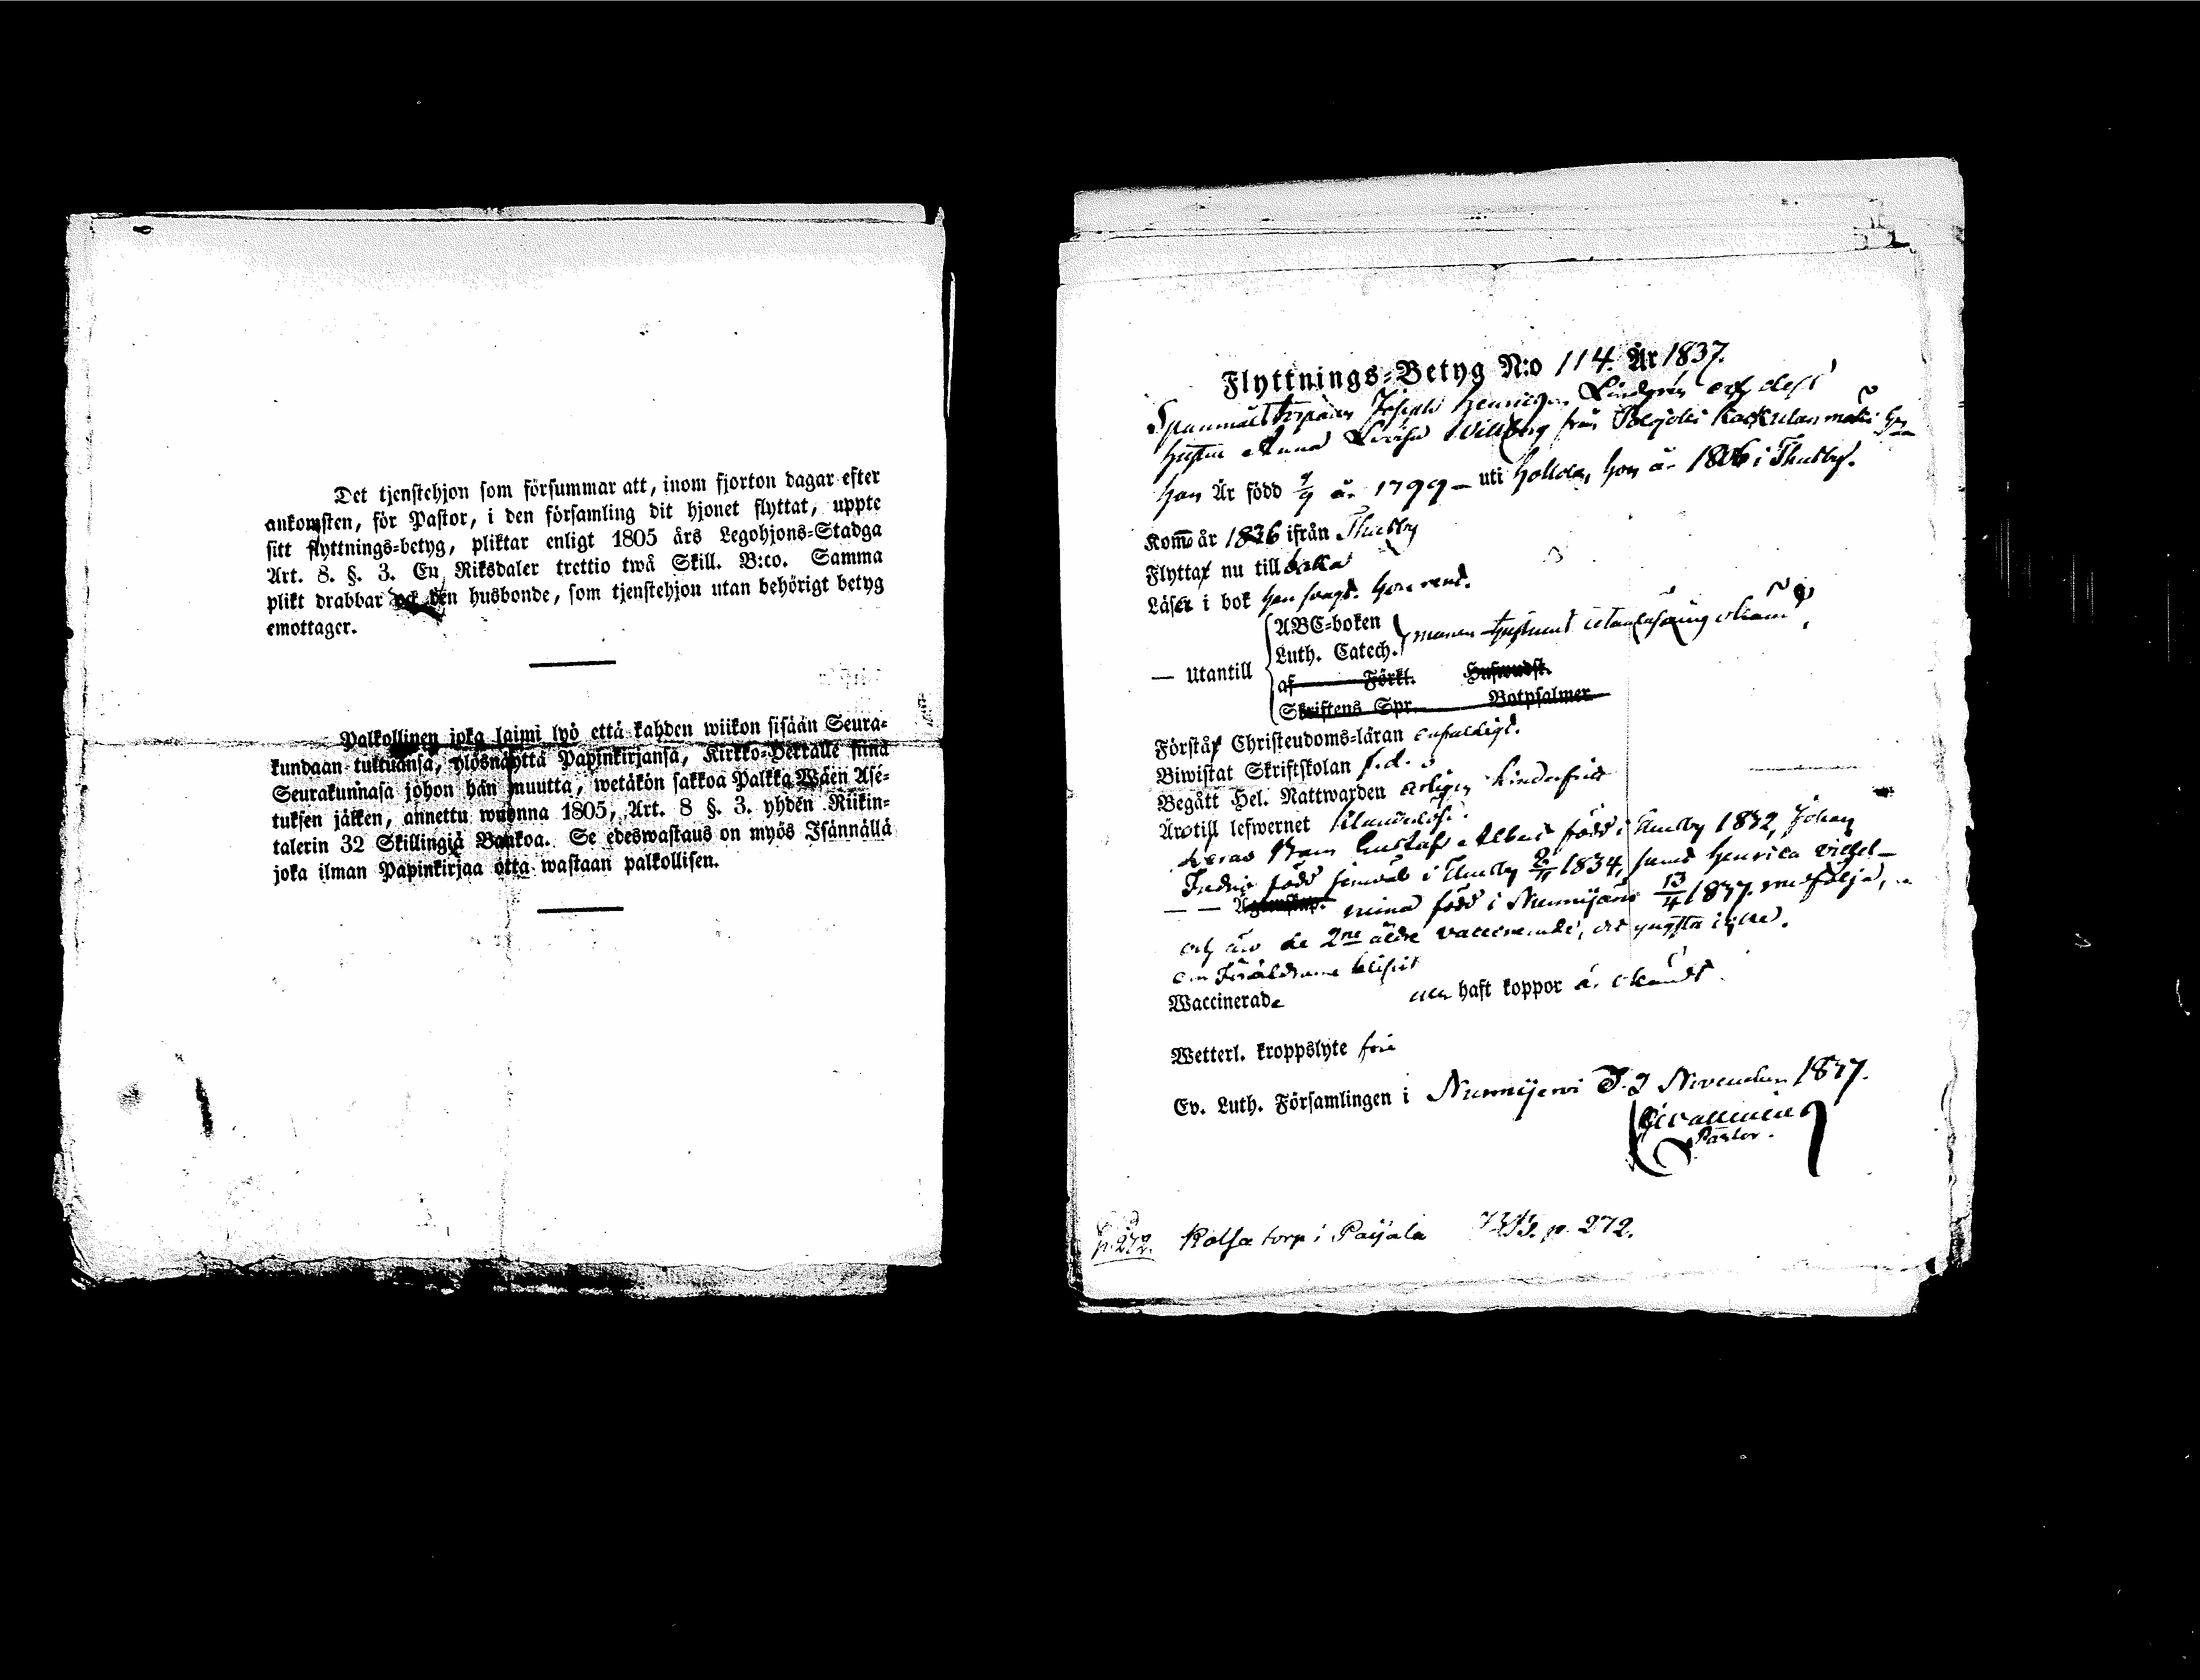 Det tjenstehjon som försummar att, inom fjorton dagar efter
ankomsten, för Pastor, i den församling dit hjonet flyttat, uppte
sitt flyttnings-betyg, pliktar enligt 1805 års Legohjons-Stadga
Art. 8. §. 3. En Riksdaler trettio twå Skill. B:co. Samma
plikt drabbar ock den husbonde, som tjenstehjon utan behörigt betyg
emottager.
Palkollinen joka laimi lyö että kahden wiikon sisään Seura-
kundaan tultuansa, ylösnäyttä Papinkirjansa, Kirkko-Herralle siinä
Seurakunnasa johon hän muutta, wetäkön sakkoa Palkka Wäen Ase-
tuksen jälken, annettu wuonna 1805, Art. 8 §. 3. yhden Riikin-
talerin 32 Skillingiä Bankoa. Se edeswastaus on myös Isännällä
joka ilman Papinkirjaa otta wastaan palkollisen.
Flyttnings-Betyg N:o 114. År 1837.
Spanmålstorparen Joseph Henricsson Lindgrén och dess
hustru Anna Lovisa Willberg från Kackulanmäki
han Är född 9/9 år 1799 – uti Hollola, hon år 1806 i Thusby.
Kommo år 1836 ifrån Thusby
Flytta nu till baka
Läser i bok han svagt. hon rent.
— Utantill
ABC-boken
Luth. Catech.
af Förkl. Husandst.
Skriftens Spr. Botpsalmer
mannen hustruns utanläsning okänd
Förstå Christendoms-läran enfaldigt.
Biwistat Skriftskolan
Begått Hel. Nattwarden årligen
Äro till lefwernet klanderlöse.
deras Barn Gustaf Albert född i Thusby 1832, Johan
Fredric född i Thusby 2/11 1834, samt Henrica Vilhel-
— — Ägenskap. mina född i Nurmijärvi 13/4 1837. medfölja,
och äro de 2ne äldre vaccinerade, det yngsta icke.
om Föräldrarne blifvit
Waccinerade eller haft koppor är okändt.
Wetterl. kroppslyte frie
Ev. Luth. Församlingen i Nurmijerwi d. 2 November 1837.
Pastor.
p. 272. Kolsa torp i Paijala p. 272.